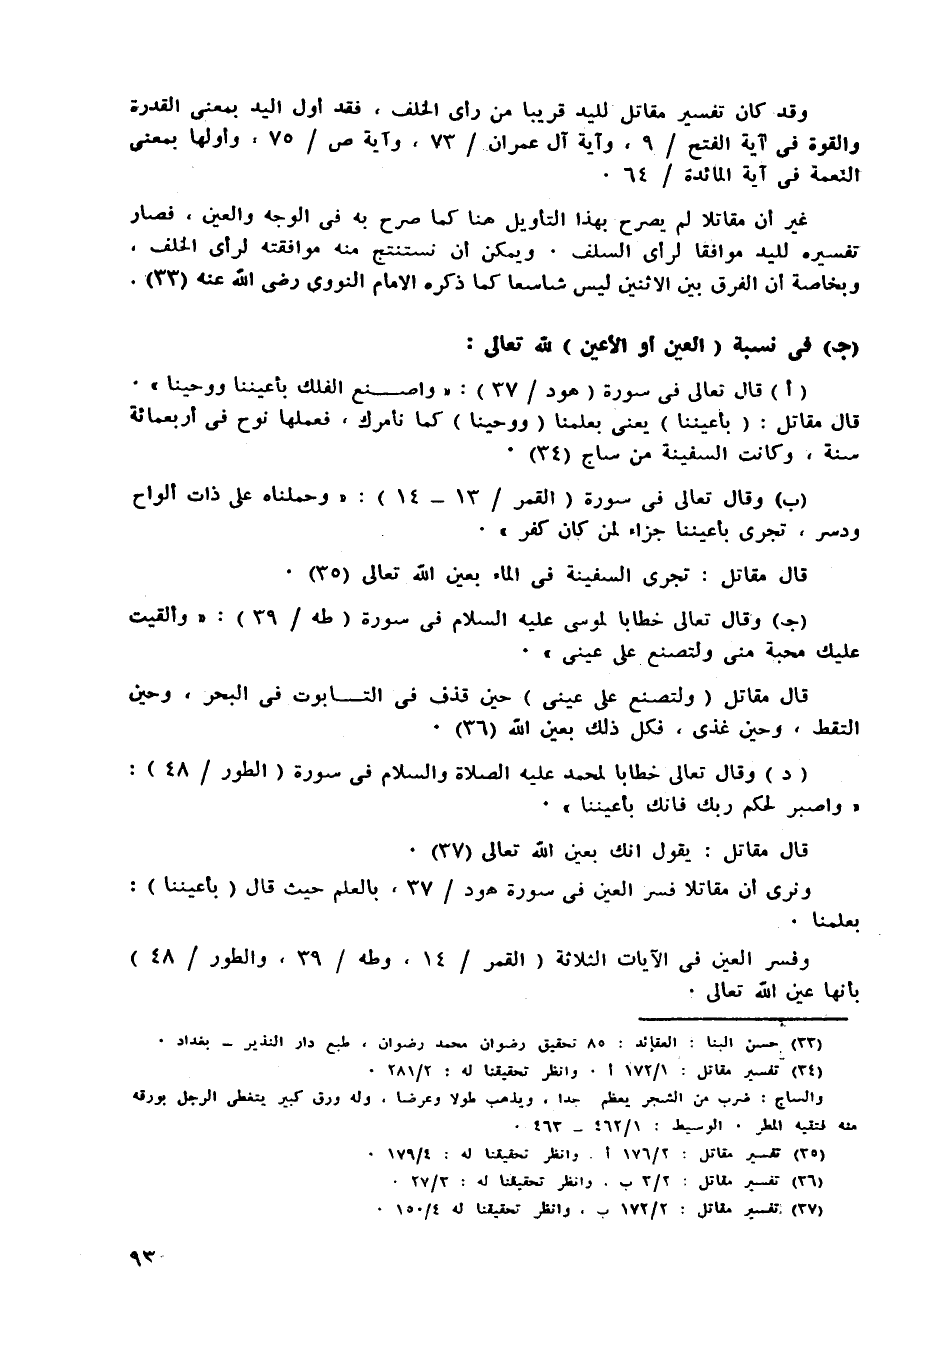 وقد كان تفسير مقاتل لليد قريبا من رأى الخلف ، فقد أول اليد بمعنى القدرة
والقوة فى آية الفتح / ٩ ، وآية آل عمران / ٧٣ ، وآية ص / ٧٥ ، وأولها بمعنى
النعمة فى آية المائدة / ٦٤ ٠
غير أن مقاتلا لم يصرح بهذا التأويل هنا كما صرح به فى الوجه والعين ، فصار
تفسيره لليد موافقا لرأى السلف ٠ ويمكن أن نستنتج منه موافقته لرأى الخلف ،
وبخاصة أن الفرق بين الاثنين ليس شاسعا كما ذكره الامام النووى رضى الله عنه (٣٣) .
(جـ) فى نسبة ( العين أو الأعين ) لله تعالى :
( أ ) قال تعالى فى سورة ( هود / ٣٧ ) : « واصـــنع الفلك بأعيننا ووحينا » ٠
قال مقاتل : ( بأعيننا ) يعنى بعلمنا ( ووحينا ) كما نأمرك ، فعملها نوح فى أربعمائة
سنة ، وكانت السفينة من ساج (٣٤) ٠
(ب) وقال تعالى فى سورة ( القمر / ١٣ ــ ١٤ ) : « وحملناه على ذات ألواح
ودسر ، تجرى بأعيننا جزاء لمن كان كفر » ٠
قال مقاتل : تجرى السفينة فى الماء بعين الله تعالى (٣٥) ٠
(جـ) وقال تعالى خطابا لموسى عليه السلام فى سورة ( طه / ٣٩ ) : « وألقيت
عليك محبة منى ولتصنع على عينى » ٠
قال مقاتل ( ولتصنع على عينى ) حين قذف فى التـــابوت فى البحر ، وحين
التقط ، وحين غذى ، فكل ذلك بعين الله (٣٦) ٠
( د ) وقال تعالى خطابا لمحمد عليه الصلاة والسلام فى سورة ( الطور / ٤٨ ) :
« واصبر لحكم ربك فانك بأعيننا » ٠
قال مقاتل : يقول انك بعين الله تعالى (٣٧) ٠
ونرى أن مقاتلا فسر العين فى سورة هود / ٣٧ ، بالعلم حيث قال ( بأعيننا ) :
بعلمنا ٠
وفسر العين فى الآيات الثلاثة ( القمر / ١٤ ، وطه / ٣٩ ، والطور / ٤٨ )
بأنها عين الله تعالى ٠
(٣٣) حسن البنا : العقائد : ٨٥ تحقيق رضوان محمد رضوان ، طبع دار النذير ــ بغداد ٠
(٣٤) تفسير مقاتل : ١٧٢/١ أ ٠ وانظر تحقيقنا له : ٢٨١/٢ ٠
والساج : ضرب من الشجر يعظم جدا ، ويذهب طولا وعرضا ، وله ورق كبير يتغطى الرجل بورقه
منه فتقيه المطر ٠ الوسيط : ٤٦٢/١ ــ ٤٦٣ ٠
(٣٥) تفسير مقاتل : ١٧٦/٢ أ . وانظر تحقيقنا له : ١٧٩/٤ ٠
(٣٦) تفسير مقاتل : ٢/٢ ب ، وانظر تحقيقنا له : ٢٧/٣ ٠
(٣٧) تفسير مقاتل : ١٧٢/٢ ب ، وانظر تحقيقنا له ١٥٠/٤ ٠
٩٣